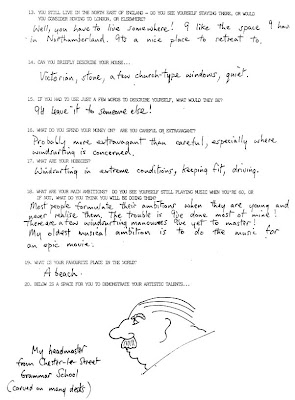 13. YOU STILL LIVE IN THE NORTH EAST OF ENGLAND - DO YOU SEE YOURSELF STAYING THERE, OR WOULD
YOU CONSIDER MOVING TO LONDON, OR ELSEWHERE?
Well, you have to live somewhere! I like the space I have
in Northumberland. Its a nice place to retreat to.
14. CAN YOU BRIEFLY DESCRIBE YOUR HOUSE...
Victorian, stone, a few church-type windows, quiet.
15. IF YOU HAD TO USE JUST A FEW WORDS TO DESCRIBE YOURSELF, WHAT WOULD THEY BE?
I'll leave it to someone else!
16. WHAT DO YOU SPEND YOUR MONEY ON? ARE YOU CAREFUL OR EXTRAVAGANT?
Probably more extravagant than careful, especially where
windsurfing is concerned.
17. WHAT ARE YOUR HOBBIES?
Windsurfing in extreme conditions, keeping fit, driving.
18. WHAT ARE YOUR MAIN AMBITIONS? DO YOU SEE YOURSELF STILL PLAYING MUSIC WHEN YOU'RE 60, OR
IF NOT, WHAT DO YOU THINK YOU WILL BE DOING THEN?
Most people formulate their ambitions when they are young and
never realise them. The trouble is I've done most of mine!
There are a few windsurfing manouvres I've yet to master!
My oldest musical ambition is to do the music for
an epic movie.
19. WHAT IS YOUR FAVOURITE PLACE IN THE WORLD?
A beach.
20. BELOW IS A SPACE FOR YOU TO DEMONSTRATE YOUR ARTISTIC TALENTS...
My headmaster
from Chester-le-Street
Grammar School
(carved on many desks)